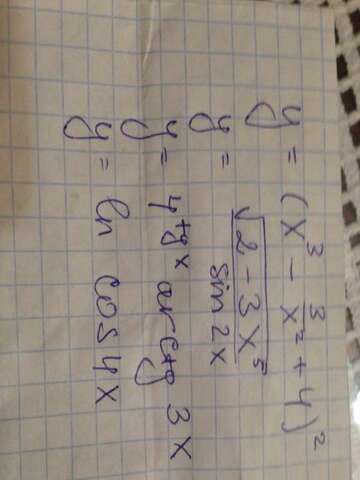 y = (x³ - 3/x² + 4)²
y = √(2 - 3x⁵) / sin 2x
y = 4^tg x arctg 3x
y = ln cos 4x